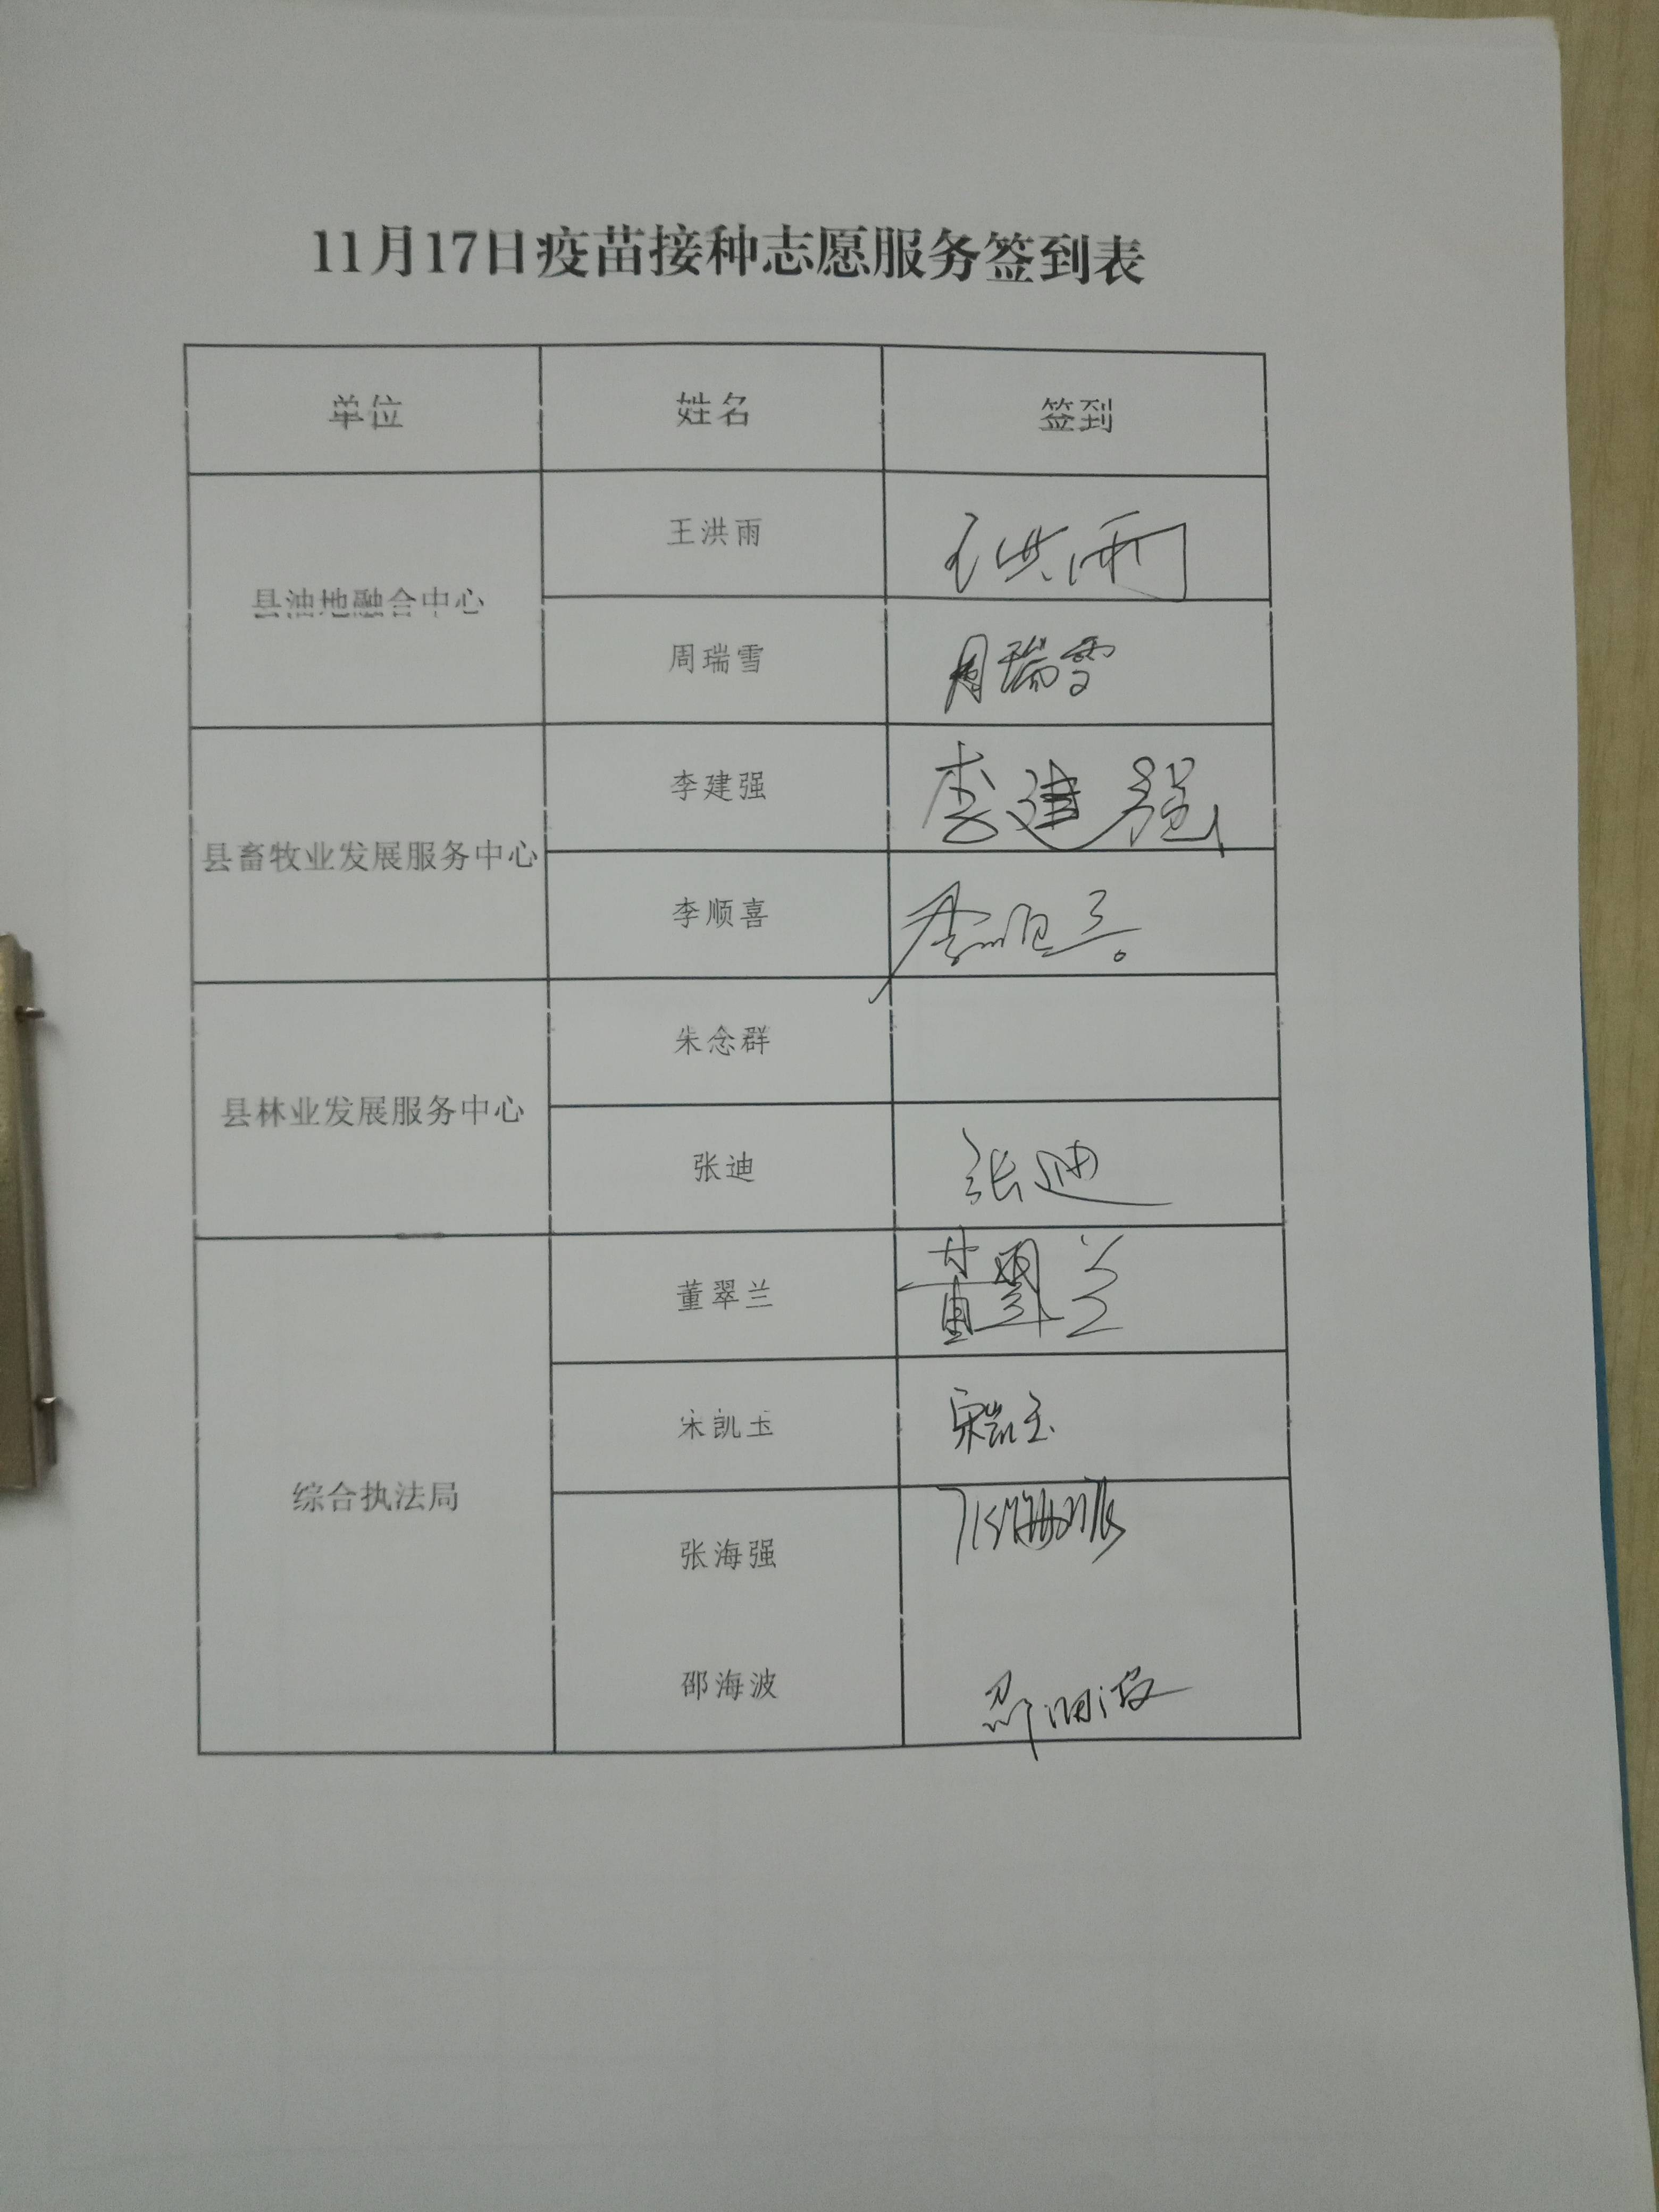 11月17日疫苗接种志愿服务签到表
单位 姓名 签到
县油地融合中心
王洪雨 王洪雨
周瑞雪 周瑞雪
县畜牧业发展服务中心
李建强 李建强
李顺喜 李顺喜
县林业发展服务中心
朱念群
张迪 张迪
综合执法局
董翠兰 董翠兰
宋凯玉 宋凯玉
张海强 张海强
邵海波 邵海波